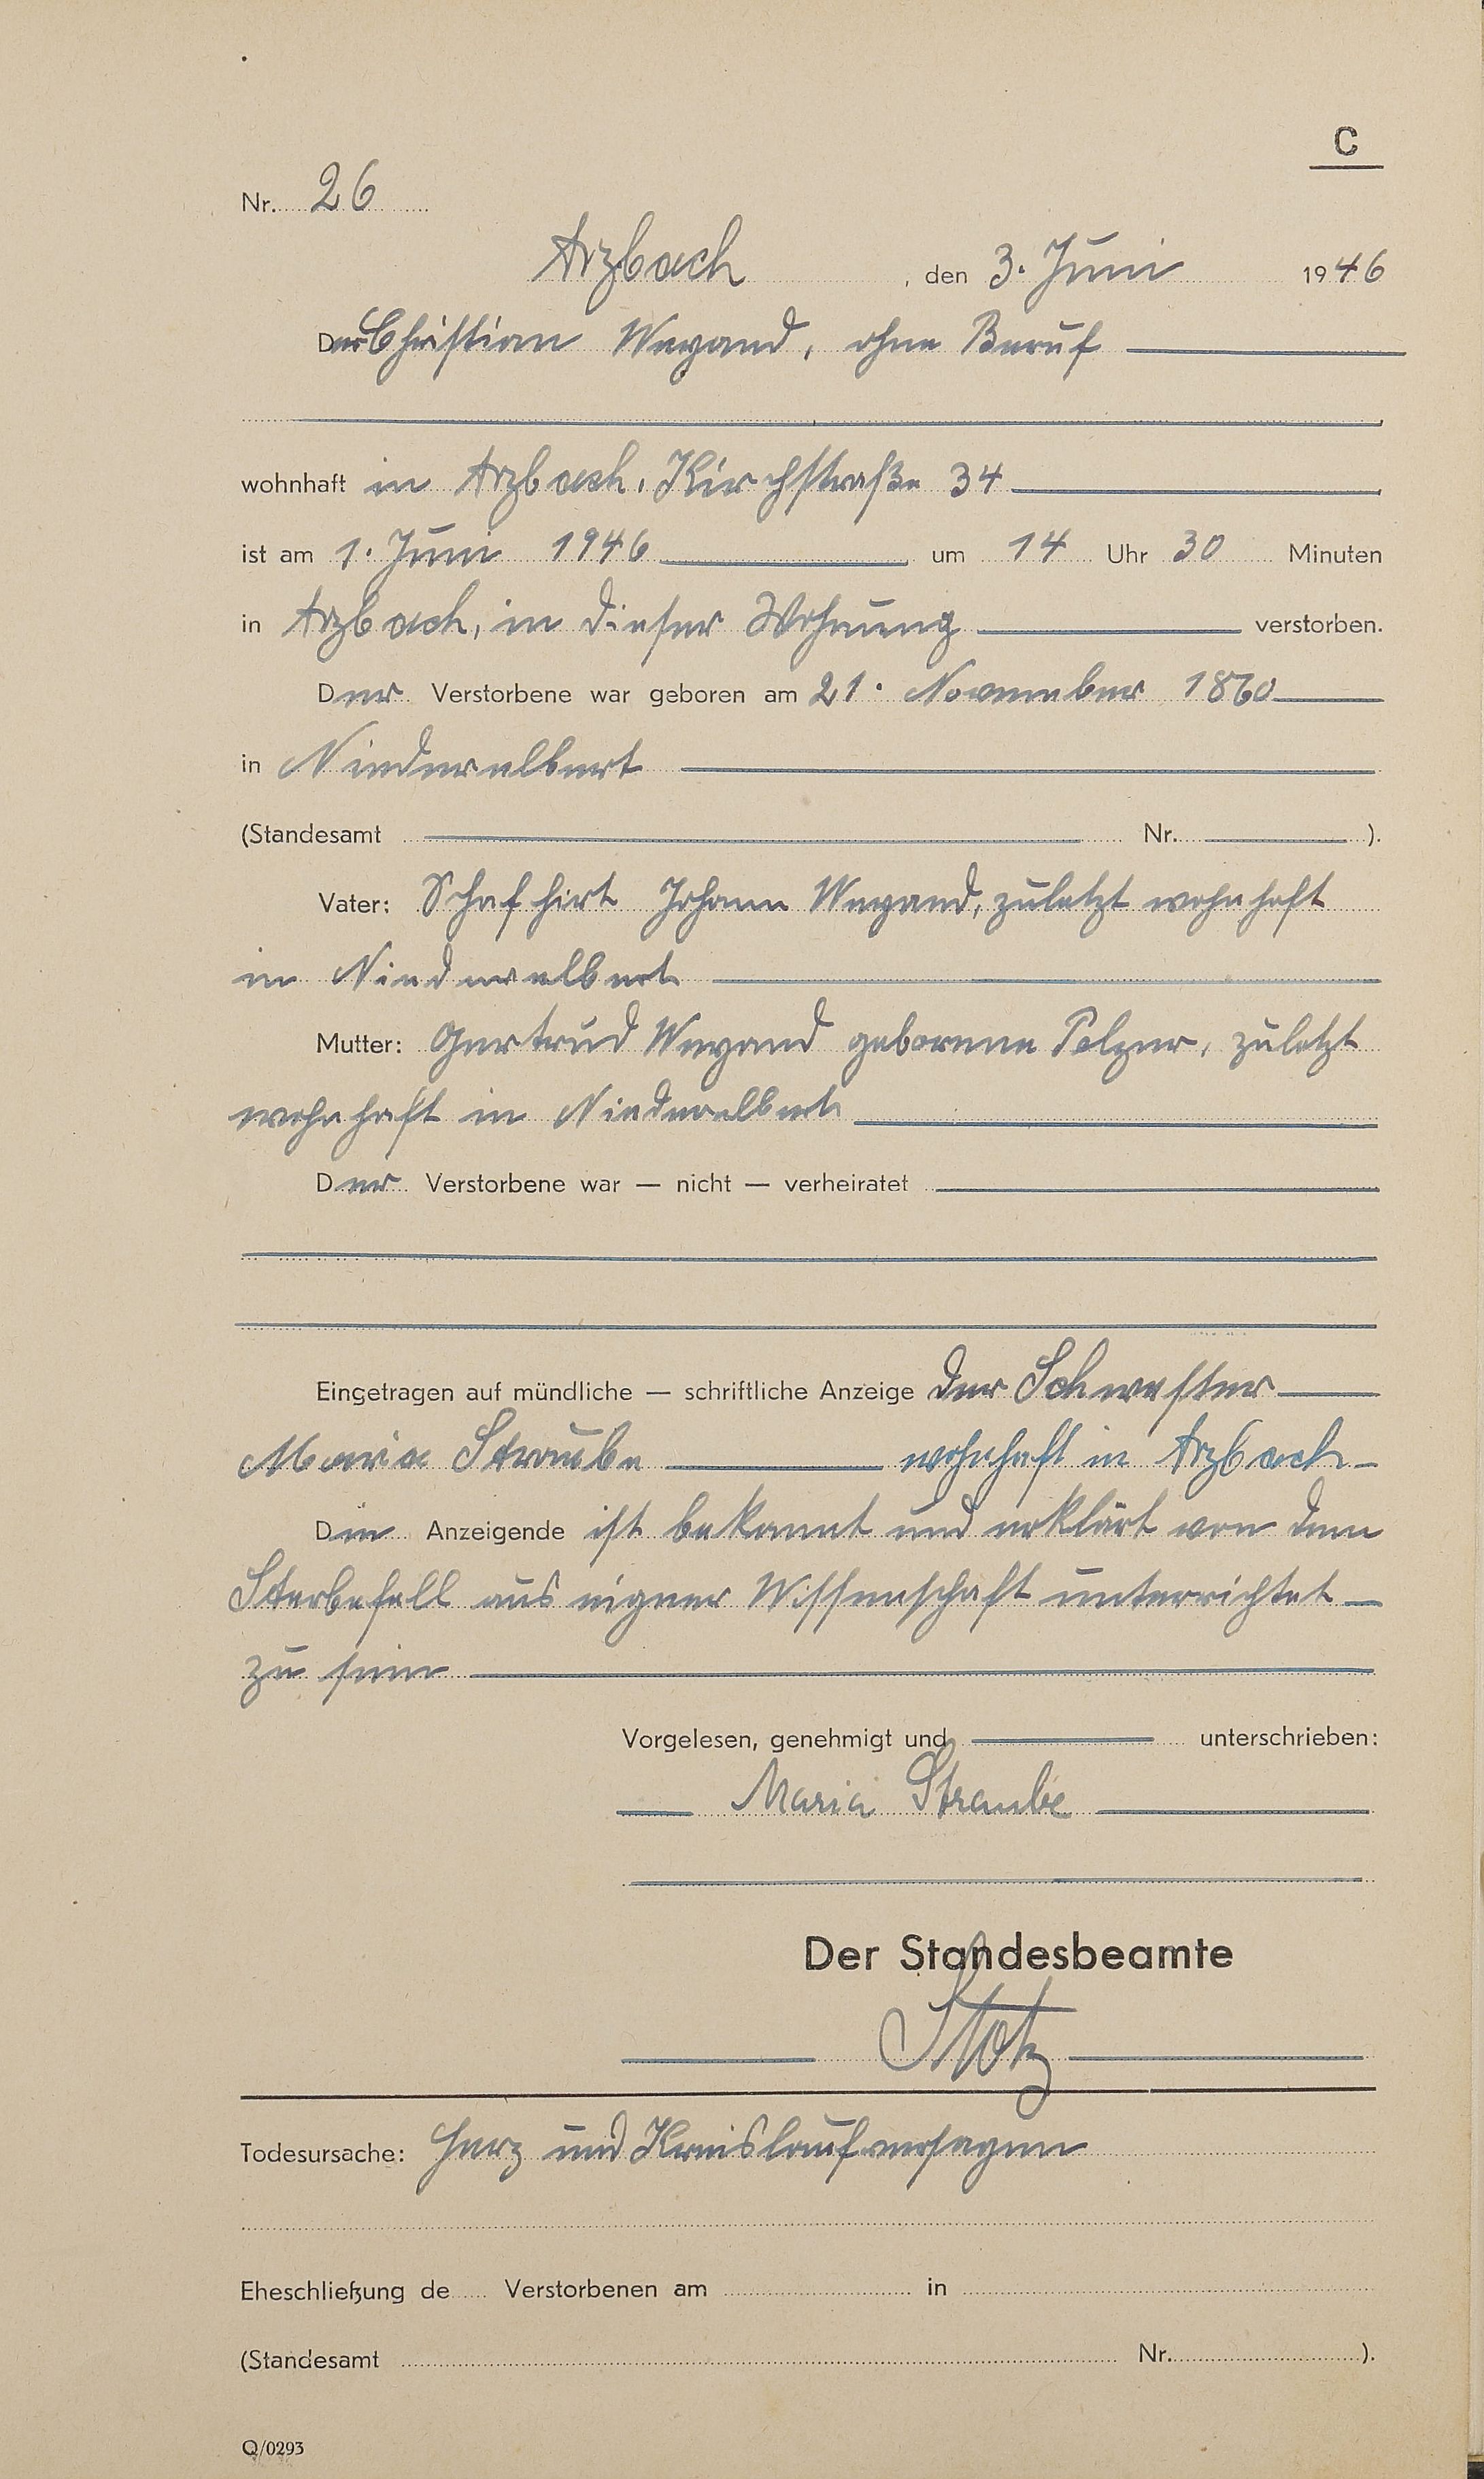 C
Nr. 26
Arzbach, den 3. Juni 1946
Der Christian Weyand, ohne Beruf
wohnhaft in Arzbach, Kirchstraße 34
ist am 1. Juni 1946 um 14 Uhr 30 Minuten
in Arzbach, in dieser Wohnung verstorben.
Der Verstorbene war geboren am 21. November 1860
in Niederelbert
(Standesamt Nr. ).
Vater: Schafhirt Johann Weyand, zuletzt wohnhaft
in Niederelbert
Mutter: Gertrud Weyand geborene Pelzer, zuletzt
wohnhaft in Niederelbert
Der Verstorbene war — nicht — verheiratet
Eingetragen auf mündliche — schriftliche Anzeige der Schwester
Maria Straube wohnhaft in Arzbach
Die Anzeigende ist bekannt und erklärt von dem
Sterbefall aus eigner Wissenschaft unterrichtet
zu sein
Vorgelesen, genehmigt und unterschrieben:
Maria Straube
Der Standesbeamte
Stotz
Todesursache: Herz und Kreislaufversagen
Eheschließung de Verstorbenen am in
(Standesamt Nr. ).
Q/0293